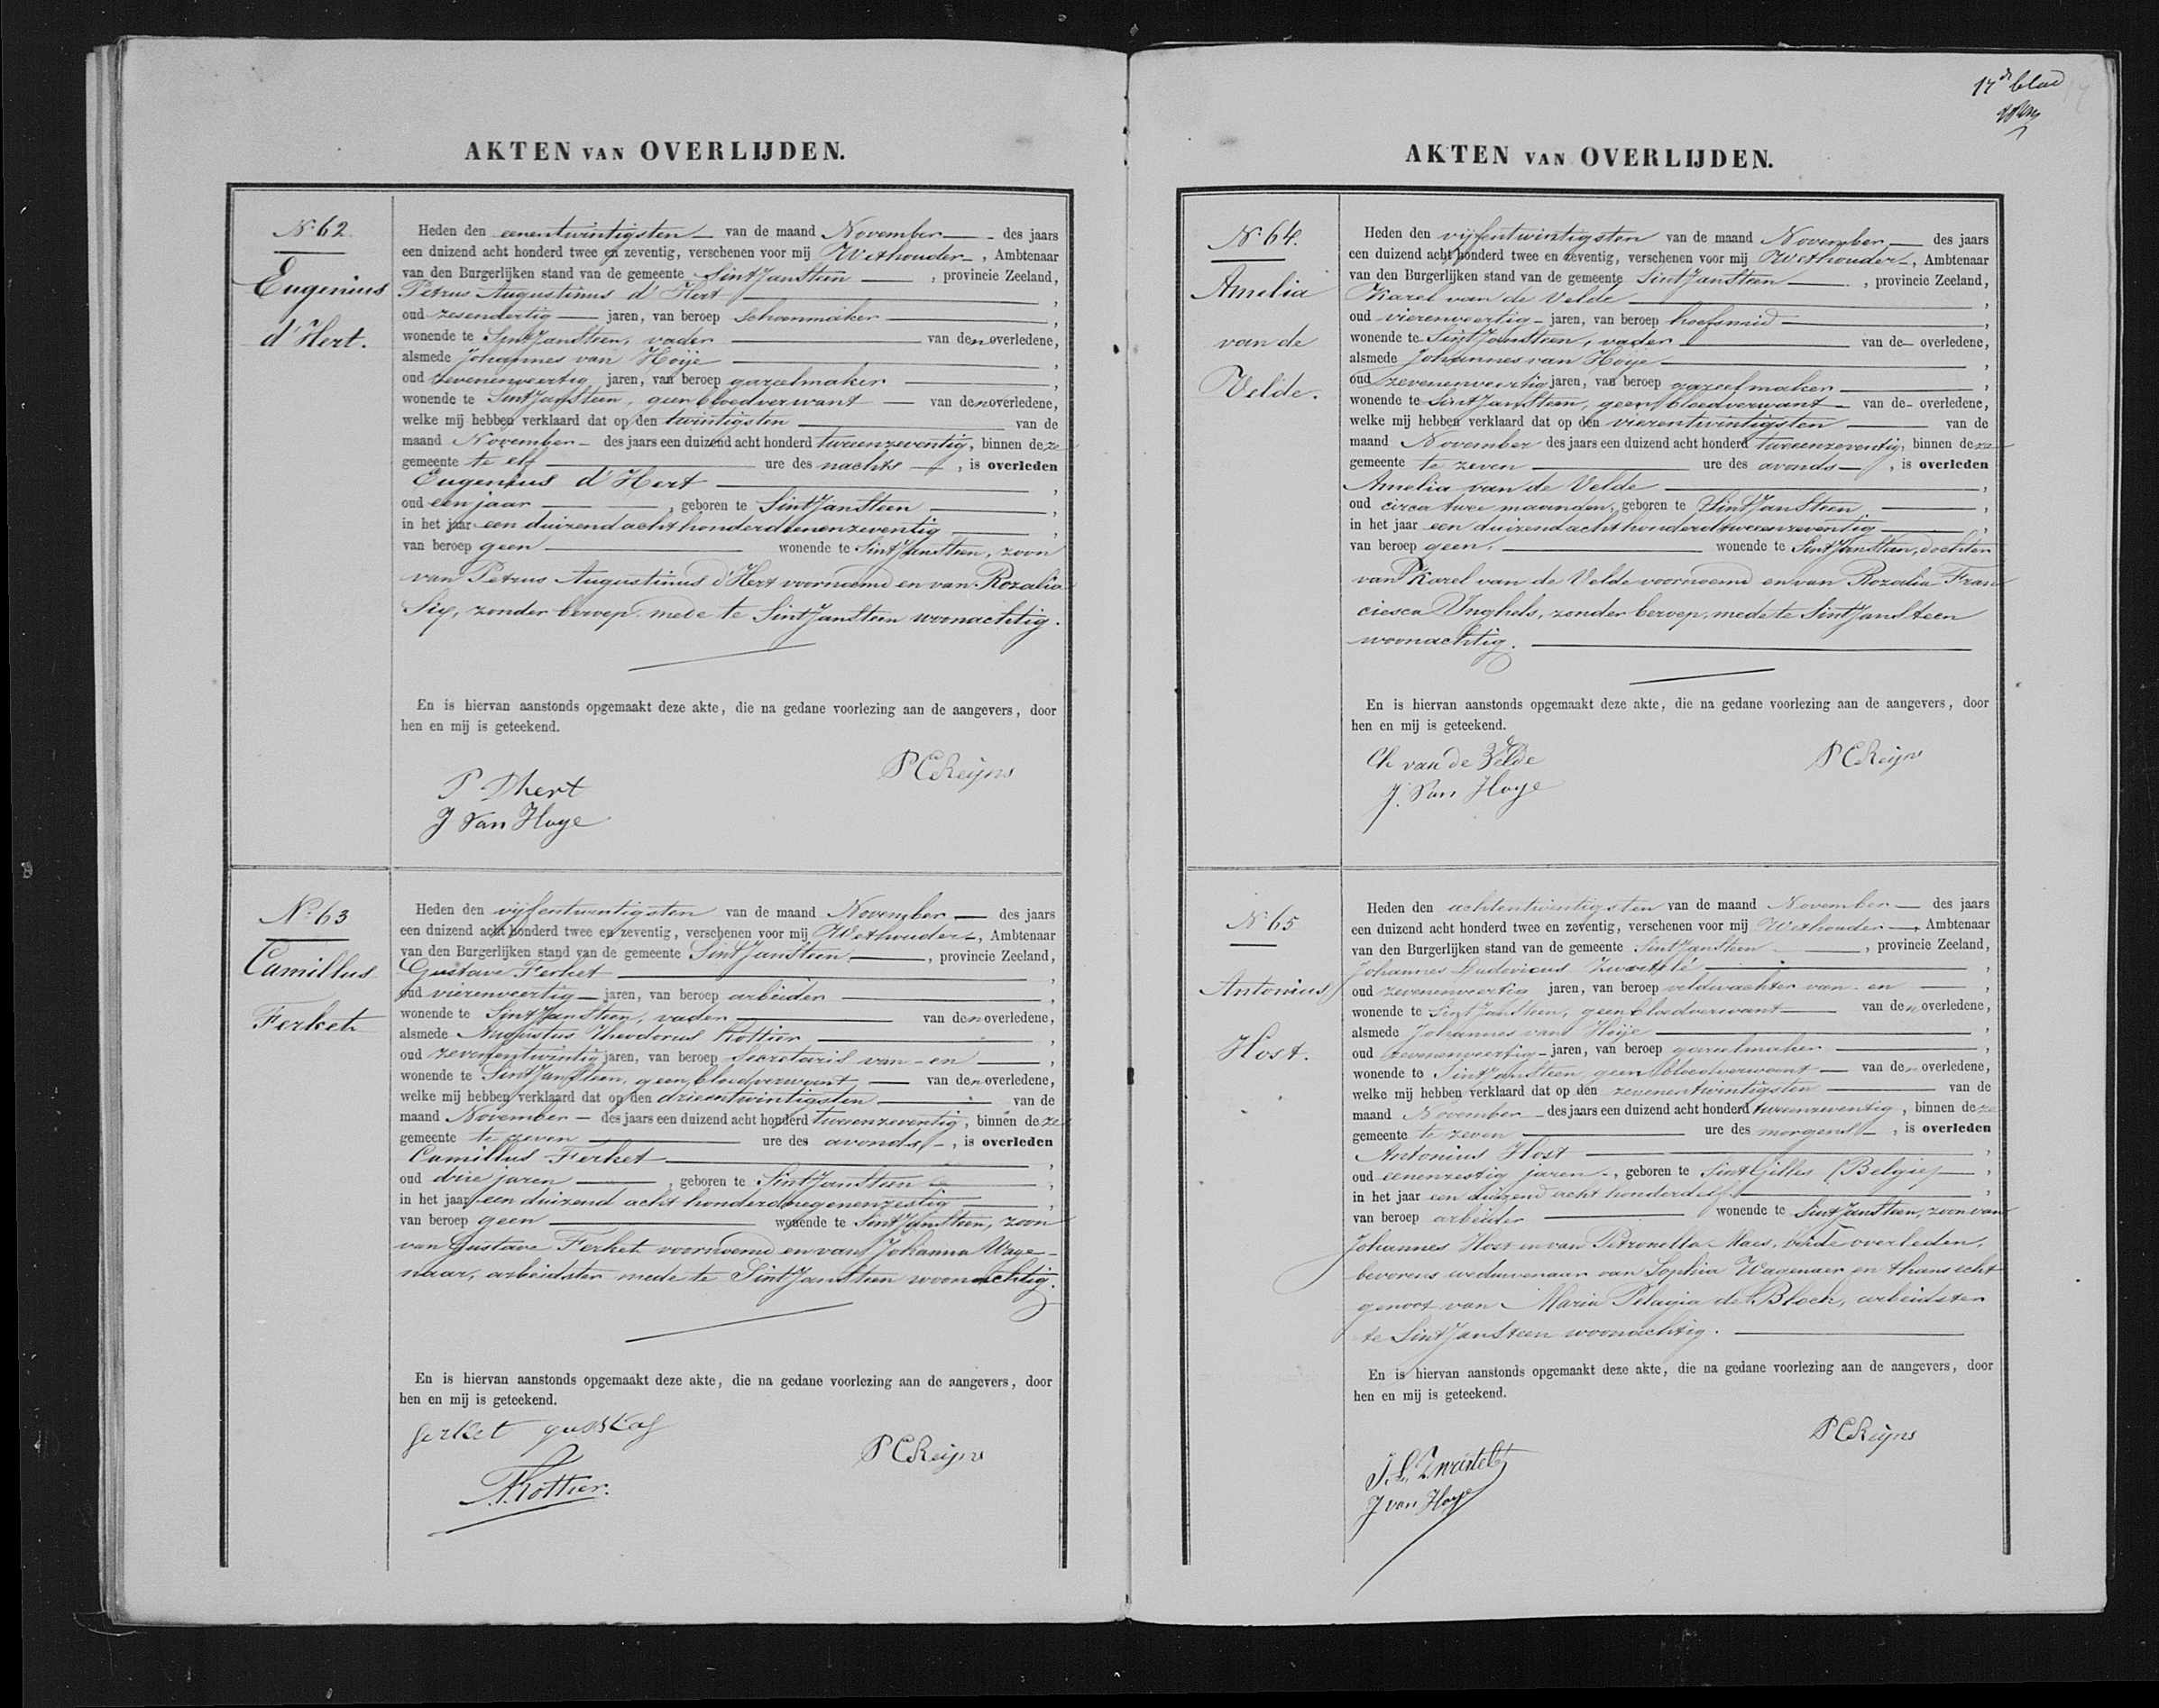 AKTEN VAN OVERLIJDEN.
No 62.
Eugenius
d'Hert.
Heden den eenentwintigsten van de maand November des jaars
een duizend acht honderd twee en zeventig, verschenen voor mij Wethouder, Ambtenaar
van den Burgerlijken stand van de gemeente Sint Jansteen, provincie Zeeland,
Petrus Augustinus d'Hert,
oud zesendertig jaren, van beroep schoenmaker,
wonende te Sint Jansteen, vader van den overledene,
alsmede Johannes van Hoije,
oud zevenenveertig jaren, van beroep gareelmaker,
wonende te Sint Jansteen, geen bloedverwant van den overledene,
welke mij hebben verklaard dat op den twintigsten van de
maand November des jaars een duizend acht honderd tweeenzeventig, binnen deze
gemeente te elf ure des nachts, is overleden
Eugenius d'Hert,
oud een jaar, geboren te Sint Jansteen,
in het jaar een duizend acht honderd eenenzeventig,
van beroep geen wonende te Sint Jansteen, zoon
van Petrus Augustinus d'Hert voornoemd en van Rozalia
Sij, zonder beroep mede te Sint Jansteen woonachtig.
En is hiervan aanstonds opgemaakt deze akte, die na gedane voorlezing aan de aangevers, door
hen en mij is geteekend.
P Dhert
P C Reijns
J Van Hoye
No 63
Camillus
Ferket
Heden den vijfentwintigsten van de maand November des jaars
een duizend acht honderd twee en zeventig, verschenen voor mij Wethouder, Ambtenaar
van den Burgerlijken stand van de gemeente Sint Jansteen, provincie Zeeland,
Gustave Ferket,
oud vierenveertig jaren, van beroep arbeider,
wonende te Sint Jansteen, vader van den overledene,
alsmede Augustus Theodorus Kottier,
oud zevenentwintig jaren, van beroep secretaris van en,
wonende te Sint Jansteen, geen bloedverwant van den overledene,
welke mij hebben verklaard dat op den drieentwintigsten van de
maand November des jaars een duizend acht honderd tweeenzeventig, binnen deze
gemeente te zeven ure des avonds, is overleden
Camillus Ferket,
oud drie jaren, geboren te Sint Jansteen,
in het jaar een duizend acht honderd negenenzestig,
van beroep geen wonende te Sint Jansteen, zoon
van Gustave Ferket voornoemd en van Johanna Wage-
naar, arbeidster mede te Sint Jansteen woonachtig.
En is hiervan aanstonds opgemaakt deze akte, die na gedane voorlezing aan de aangevers, door
hen en mij is geteekend.
ferket
P C Reijns
Kottier.
17e blad
AKTEN VAN OVERLIJDEN.
No 64.
Amelia
van de
Velde.
Heden den vijfentwintigsten van de maand November des jaars
een duizend acht honderd twee en zeventig, verschenen voor mij Wethouder, Ambtenaar
van den Burgerlijken stand van de gemeente Sint Jansteen, provincie Zeeland,
Karel van de Velde,
oud vierenveertig jaren, van beroep hoefsmid,
wonende te Sint Jansteen, vader van de overledene,
alsmede Johannes van Hoye,
oud zevenenveertig jaren, van beroep gareelmaker,
wonende te Sint Jansteen, geen bloedverwant van de overledene,
welke mij hebben verklaard dat op den vierentwintigsten van de
maand November des jaars een duizend acht honderd tweeenzeventig, binnen deze
gemeente te zeven ure des avonds, is overleden
Amelia van de Velde,
oud circa twee maanden, geboren te Sint Jansteen,
in het jaar een duizend acht honderd tweeenzeventig,
van beroep geen, wonende te Sint Jansteen, dochter
van Karel van de Velde voornoemd en van Rozalia Fran
ciesca Inghels, zonder beroep, mede te Sint Jansteen
woonachtig.
En is hiervan aanstonds opgemaakt deze akte, die na gedane voorlezing aan de aangevers, door
hen en mij is geteekend.
Ch van de Velde
P C Reijns
J. Van Hoye
No 65
Antonius
Host.
Heden den achtentwintigsten van de maand November des jaars
een duizend acht honderd twee en zeventig, verschenen voor mij Wethouder, Ambtenaar
van den Burgerlijken stand van de gemeente Sint Jansteen, provincie Zeeland,
Johannes Ludovicus Zwartelé,
oud zevenenveertig jaren, van beroep veldwachter van en,
wonende te Sint Jansteen, geen bloedverwant van den overledene,
alsmede Johannes van Hoije,
oud zevenenveertig jaren, van beroep gareelmaker,
wonende te Sint Jansteen geen bloedverwant van den overledene,
welke mij hebben verklaard dat op den zevenentwintigsten van de
maand November des jaars een duizend acht honderd tweeenzeventig, binnen deze
gemeente te zeven ure des morgens, is overleden
Antonius Host,
oud eenenzestig jaren, geboren te Sint Gilles (Belgie),
in het jaar een duizend acht honderd elf,
van beroep arbeider wonende te Sint Jansteen, zoon van
Johannes Host en van Petronella Maes, beide overleden,
bevorens weduwenaar van Sophia Wagenaer en thans echt
genoot van Maria Pelagia de Block, arbeidster
te Sint Jansteen woonachtig.
En is hiervan aanstonds opgemaakt deze akte, die na gedane voorlezing aan de aangevers, door
hen en mij is geteekend.
P C Reijns
J. L. Zwartelé
J van Hoye